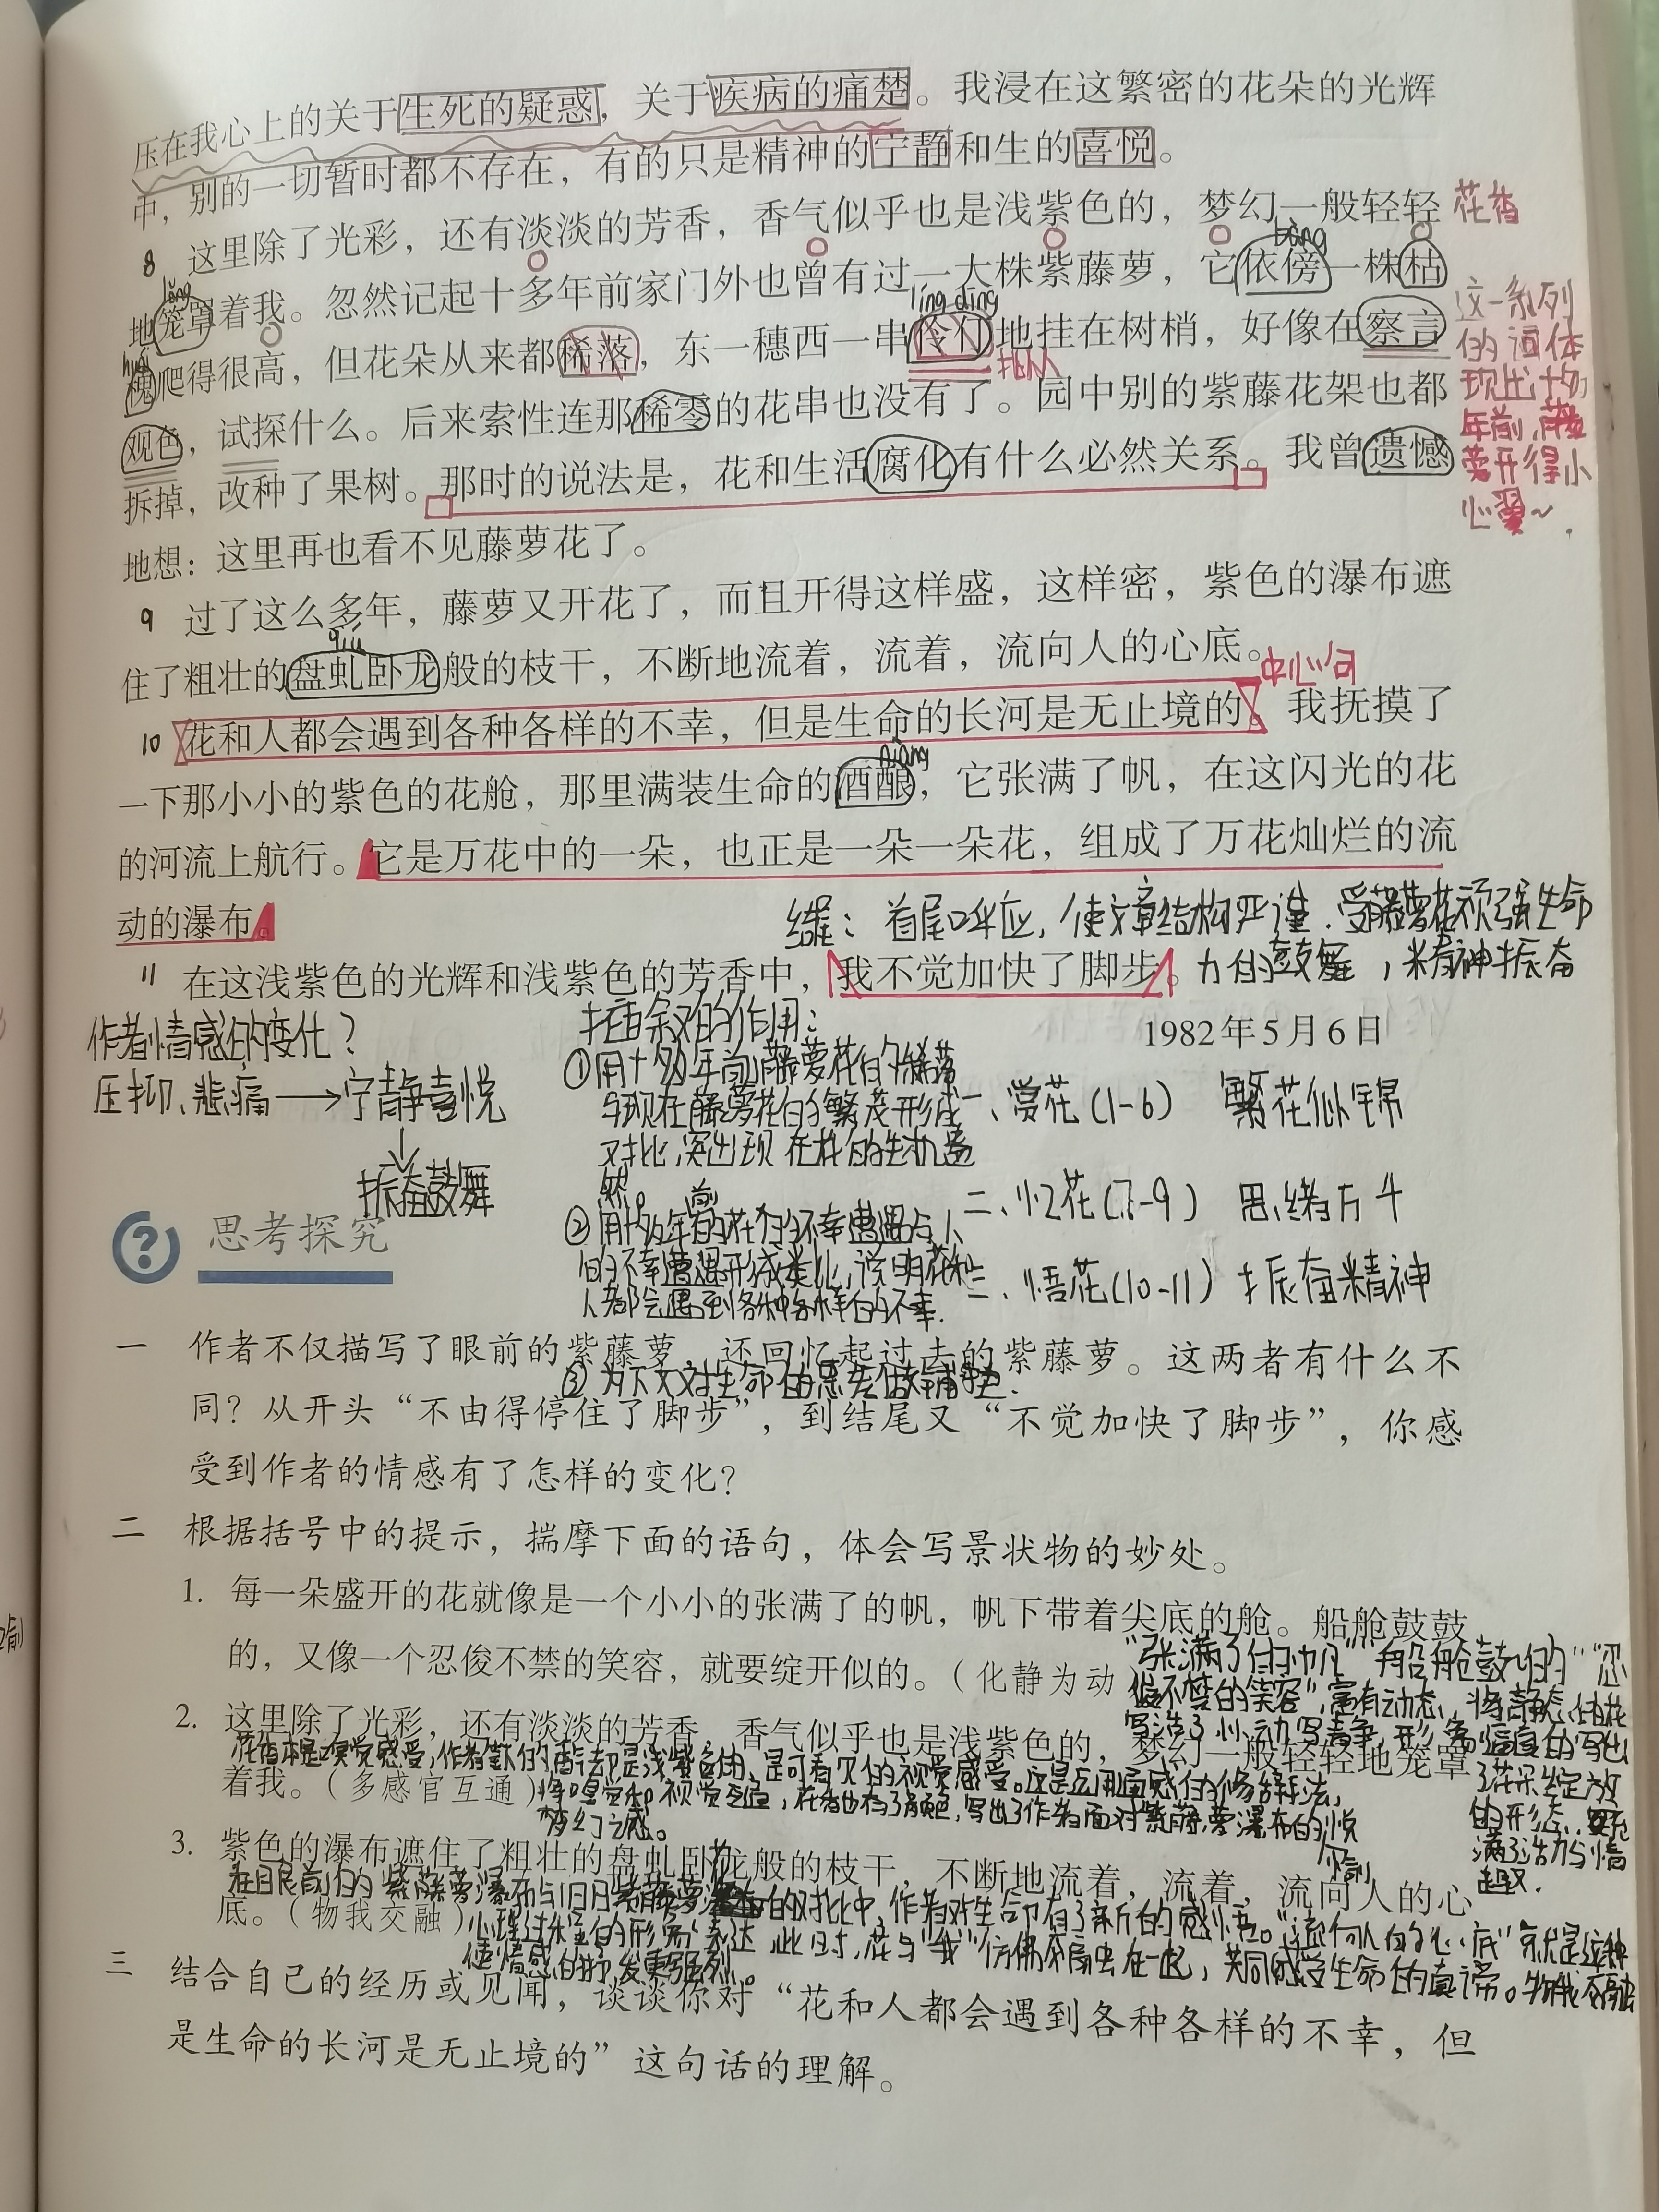 压在我心上的关于生死的疑惑，关于疾病的痛楚。我浸在这繁密的花朵的光辉
中，别的一切暂时都不存在，有的只是精神的宁静和生的喜悦。
8 这里除了光彩，还有淡淡的芳香，香气似乎也是浅紫色的，梦幻一般轻轻
花香
bàng
lǒng
地笼罩着我。忽然记起十多年前家门外也曾有过一大株紫藤萝，它依傍一株枯
líng dīng
huái
槐爬得很高，但花朵从来都稀落，东一穗西一串伶仃地挂在树梢，好像在察言
拟人
观色，试探什么。后来索性连那稀零的花串也没有了。园中别的紫藤花架也都
拆掉，改种了果树。那时的说法是，花和生活腐化有什么必然关系。我曾遗憾
地想：这里再也看不见藤萝花了。
这一系列
的词体
现出十多
年前，藤
萝开得小
心翼~.
9 过了这么多年，藤萝又开花了，而且开得这样盛，这样密，紫色的瀑布遮
qiú
住了粗壮的盘虬卧龙般的枝干，不断地流着，流着，流向人的心底。
中心句
10 花和人都会遇到各种各样的不幸，但是生命的长河是无止境的。我抚摸了
niàng
一下那小小的紫色的花舱，那里满装生命的酒酿，它张满了帆，在这闪光的花
的河流上航行。它是万花中的一朵，也正是一朵一朵花，组成了万花灿烂的流
动的瀑布。
结尾：首尾呼应，使文章结构严谨．受藤萝花顽强生命
力的鼓舞，精神振奋
11 在这浅紫色的光辉和浅紫色的芳香中，我不觉加快了脚步。
1982年5月6日
作者情感的变化？
压抑、悲痛→宁静喜悦
↓
振奋鼓舞
插叙的作用：
①用十多年前藤萝花的稀落
与现在藤萝花的繁茂形成
对比，突出现在花的生机盎
然。
②用十多年前的花的不幸遭遇与人
的不幸遭遇形成类比，说明花和
人都会遇到各种各样的不幸．
③为下文对生命的思考做铺垫．
一、赏花(1-6) 繁花似锦
二、忆花(7-9) 思绪万千
三、悟花(10-11) 振奋精神
思考探究
一 作者不仅描写了眼前的紫藤萝，还回忆起过去的紫藤萝。这两者有什么不
同？从开头“不由得停住了脚步”，到结尾又“不觉加快了脚步”，你感
受到作者的情感有了怎样的变化？
二 根据括号中的提示，揣摩下面的语句，体会写景状物的妙处。
1. 每一朵盛开的花就像是一个小小的张满了的帆，帆下带着尖底的舱。船舱鼓鼓
的，又像一个忍俊不禁的笑容，就要绽开似的。（化静为动）
“张满了的帆”“船舱鼓鼓的”“忍
俊不禁的笑容”，富有动态，将静态的花
写活了，以动写静，形象逼真的写出
了花朵绽放
的形态，
满了活力与情
趣．
2. 这里除了光彩，还有淡淡的芳香，香气似乎也是浅紫色的，梦幻一般轻轻地笼罩
着我。（多感官互通）
花香本是嗅觉感受，作者说的香气却是浅紫色的，是可看见的视觉感受。这是运用通感的修辞手法，
将嗅觉和视觉互通，花香也有了颜色，写出了作者面对紫藤萝瀑布的愉悦
梦幻之感。
3. 紫色的瀑布遮住了粗壮的盘虬卧龙般的枝干，不断地流着，流着，流向人的心
底。（物我交融）
在目前的紫藤萝瀑布与旧日紫藤萝的对比中，作者对生命有了新的感悟。“流向人的心底”就是这种
心理过程的形象表达，此时，花与“我”仿佛交融在一起，共同感受生命的真谛。物我交融
使情感的抒发更强烈。
三 结合自己的经历或见闻，谈谈你对“花和人都会遇到各种各样的不幸，但
是生命的长河是无止境的”这句话的理解。